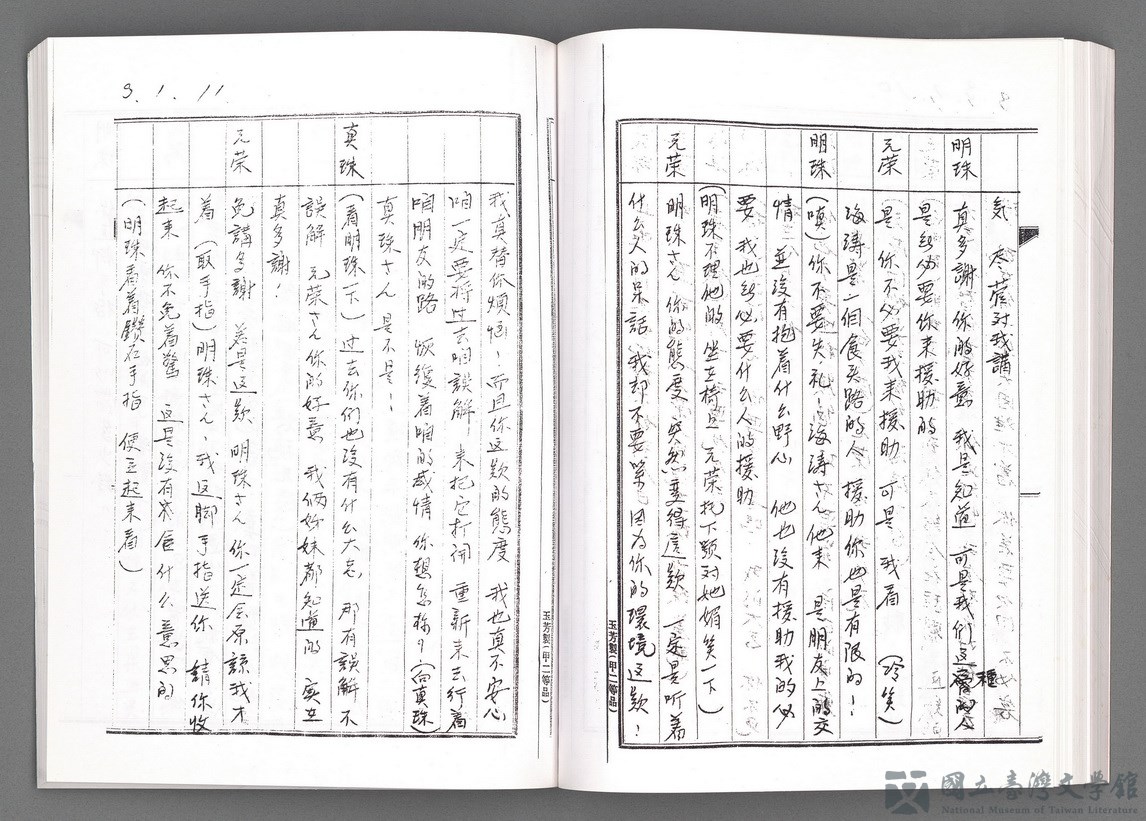 気 尽管对我講
明珠 真多謝你的好意 我是知道 可是我们这種的人
是無必要你来援助的
元荣 是 你不必要我来援助 可是 我看 (冷笑)
海涛是一個食头路的人 援助你也是有限的!
明珠 (嗔)你不要失礼!海涛さん他来 是朋友上的交
情 並沒有抱着什么野心 他也沒有援助我的必
要 我也無必要什么人的援助
(明珠不理他的 坐在椅旦 元荣托下顎对她媚笑一下)
元荣 明珠さん 你的態度 突然变得這款 一定是听着
什么人的呆話 我却不要緊 因为你的環境这款!
我真替你煩悩!而且你这款的態度 我也真不安心
咱一定要将过去咱誤解 来把它打開 重新来去行着
咱朋友的路 恢復着咱的感情 你想怎様?(向真珠)
真珠さん 是不是!
真珠 (看明珠一下)过去你们也沒有什么大志 那有誤解 不
誤解 元荣さん你的好意 我俩姉妹都知道的 实在
真多謝!
元荣 免講多謝 若是这款 明珠さん 你一定会原諒我才
着 (取手指)明珠さん、我这脚手指送你 請你收
起来 你不免着驚 这是沒有 什么意思的
(明珠看着鑽石手指 便立起来看)
3.1.11
玉芳製(甲二等品)
玉芳製(甲二等品)
國立臺灣文學館
National Museum of Taiwan Literature